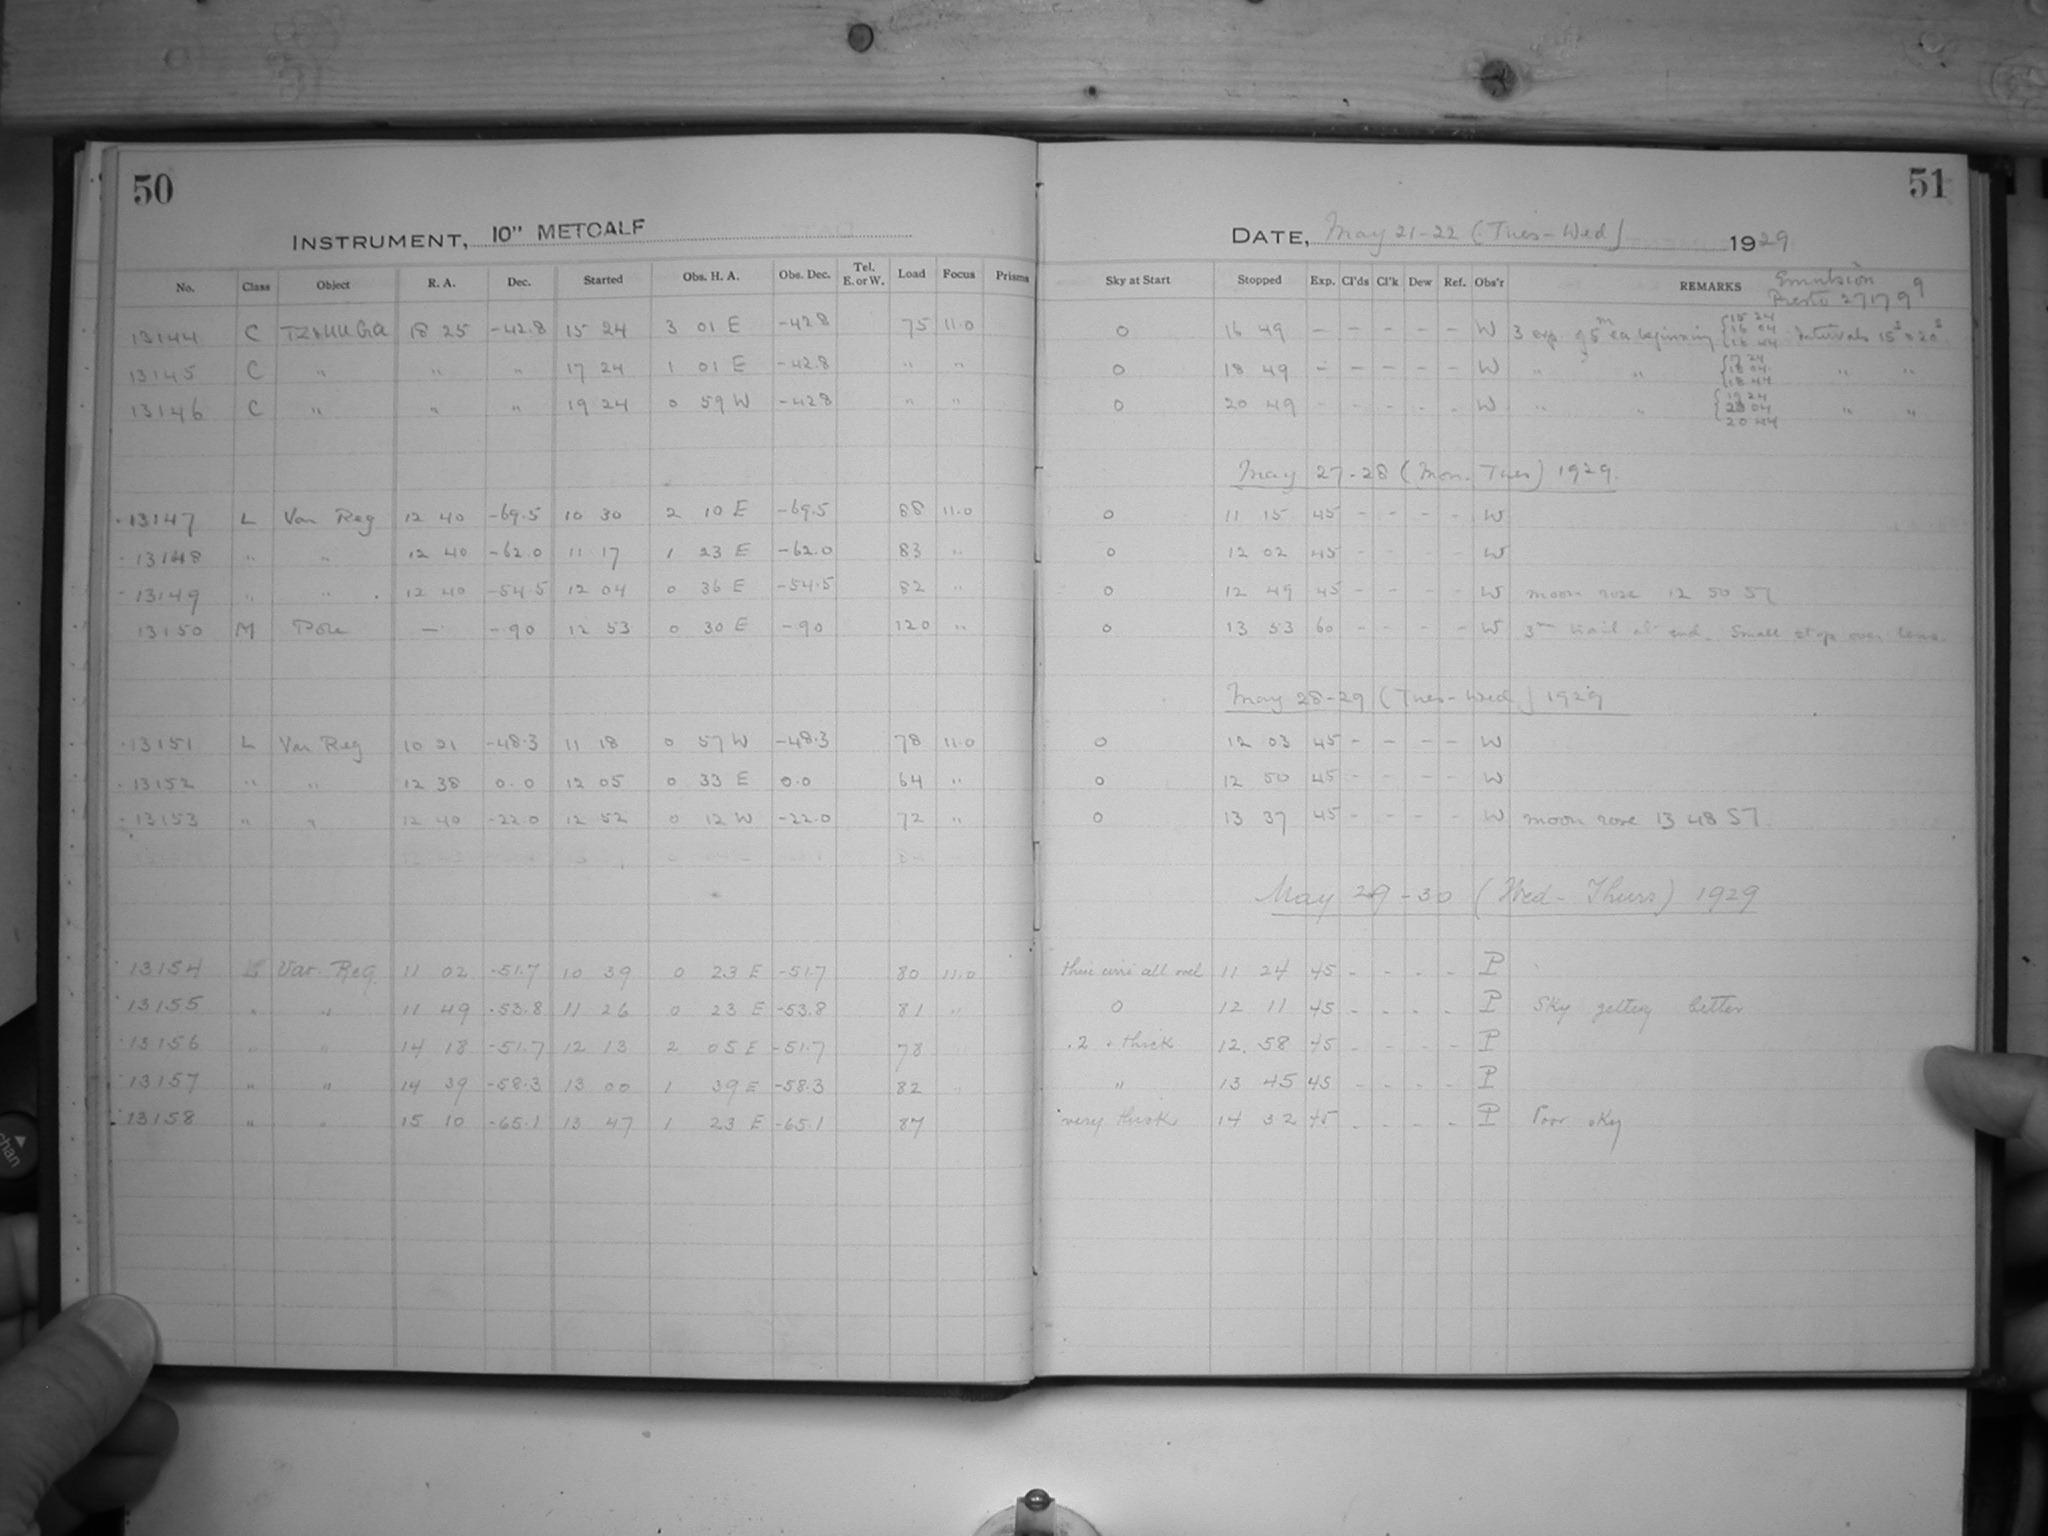 50
INSTRUMENT, 10" METCALF
No. Class Object R. A. Dec. Started Obs. H. A. Obs. Dec. Tel. E. or W. Load Focus Prisms
13144 C 18 25 -42.8 15 24 3 01 E -42.8 75 11.0
13145 C " " " 17 24 1 01 E -42.8 " "
13146 C " " " 19 24 0 59 W -42.8 " "
13147 L Var Reg 12 40 -69.5 10 30 2 10 E -69.5 88 11.0
13148 " " 12 40 -62.0 11 17 1 23 E -62.0 83 "
13149 " " 12 40 -54.5 12 04 0 36 E -54.5 82 "
13150 M Pole — -90 12 53 0 30 E -90 120 "
13151 L Var Reg 10 21 -48.3 11 18 0 57 W -48.3 78 11.0
13152 " " 12 38 0.0 12 05 0 33 E 0.0 64 "
13153 " " 12 40 -22.0 12 52 0 12 W -22.0 72 "
13154 L Var. Reg. 11 02 -51.7 10 39 0 23 E -51.7 80 11.0
13155 " " 11 49 -53.8 11 26 0 23 E -53.8 81 "
13156 " " 14 18 -51.7 12 13 2 05 E -51.7 78 "
13157 " " 14 39 -58.3 13 00 1 39 E -58.3 82 "
13158 " " 15 10 -65.1 13 47 1 23 E -65.1 87
51
DATE, May 21-22 (Tues-Wed) 1929
Sky at Start Stopped Exp. Cl'ds Cl'k Dew Ref. Obs'r REMARKS Emulsion
Presto 27179
0 16 49 - - - - - W 3 exp. of 5m ea beginning {15 24 16 04 16 44 Intervals 15s & 20s
0 18 49 - - - - - W " " {17 24 18 04 18 44 " "
0 20 49 - - - - - W " " {19 24 20 04 20 44 " "
May 27-28 (Mon-Tues) 1929.
0 11 15 45 - - - - W
0 12 02 45 - - - - W
0 12 49 45 - - - - W moon rose 12 50 ST
0 13 53 60 - - - - W 3m trail at end. Small stop over lens.
May 28-29 (Tues-Wed) 1929
0 12 03 45 - - - - W
0 12 50 45 - - - - W
0 13 37 45 - - - - W moon rose 13 48 ST.
May 29-30 (Wed-Thurs) 1929
all over 11 24 45 - - - - P
0 12 11 45 - - - - P Sky getting better
.2 + thick 12 58 45 - - - - P
" 13 45 45 - - - - P
very thick 14 32 45 - - - - P Poor sky
chan